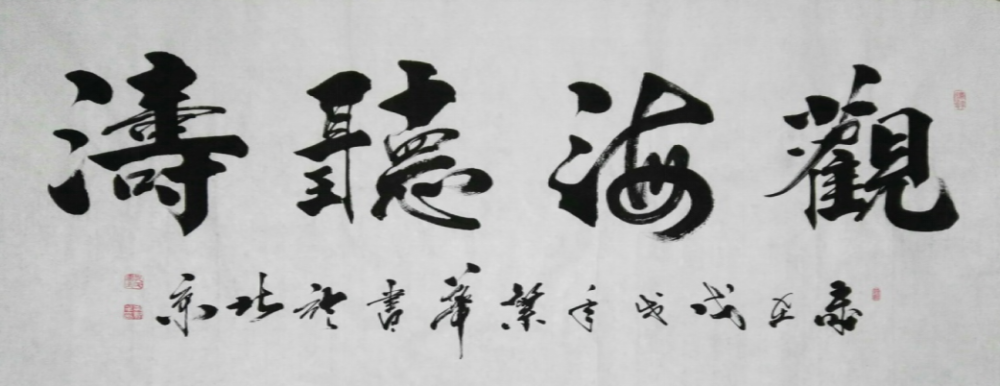 觀海聽濤
歲在戊戌年業華書於北京